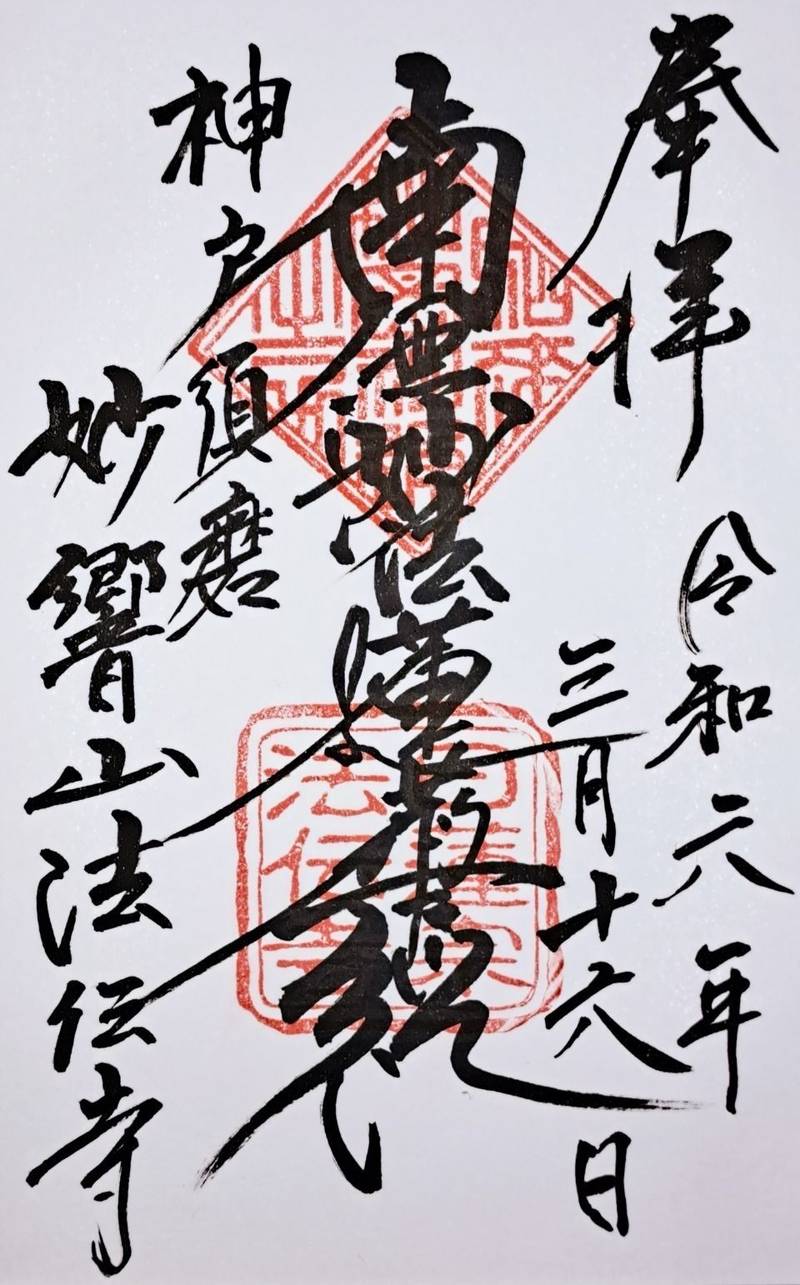 奉拝
令和六年
三月十六日
南無妙法蓮華経
神戸須磨
妙響山法伝寺
法伝寺